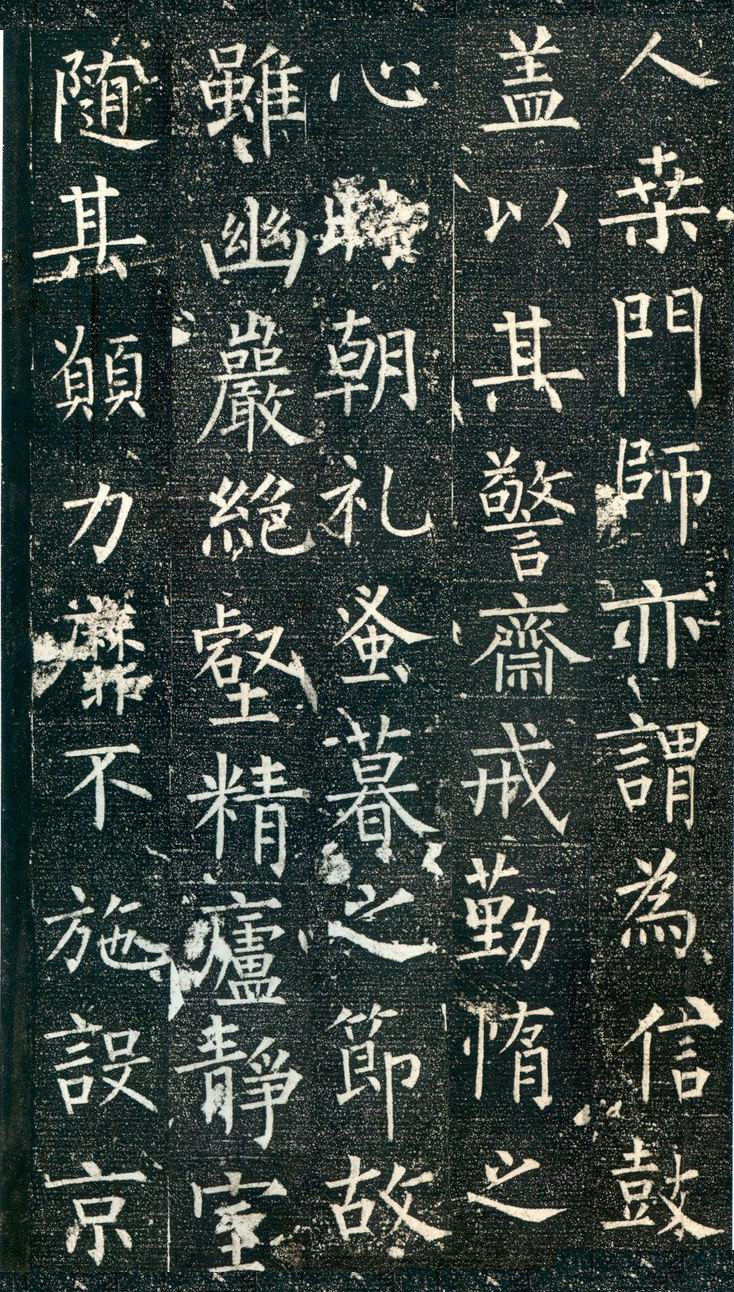 人桒門師亦謂為信鼓
盖以其警齋戒勤惰之
心時朝礼蚤暮之節故
雖幽巖絕壑精廬靜室
随其願力靡不施設京